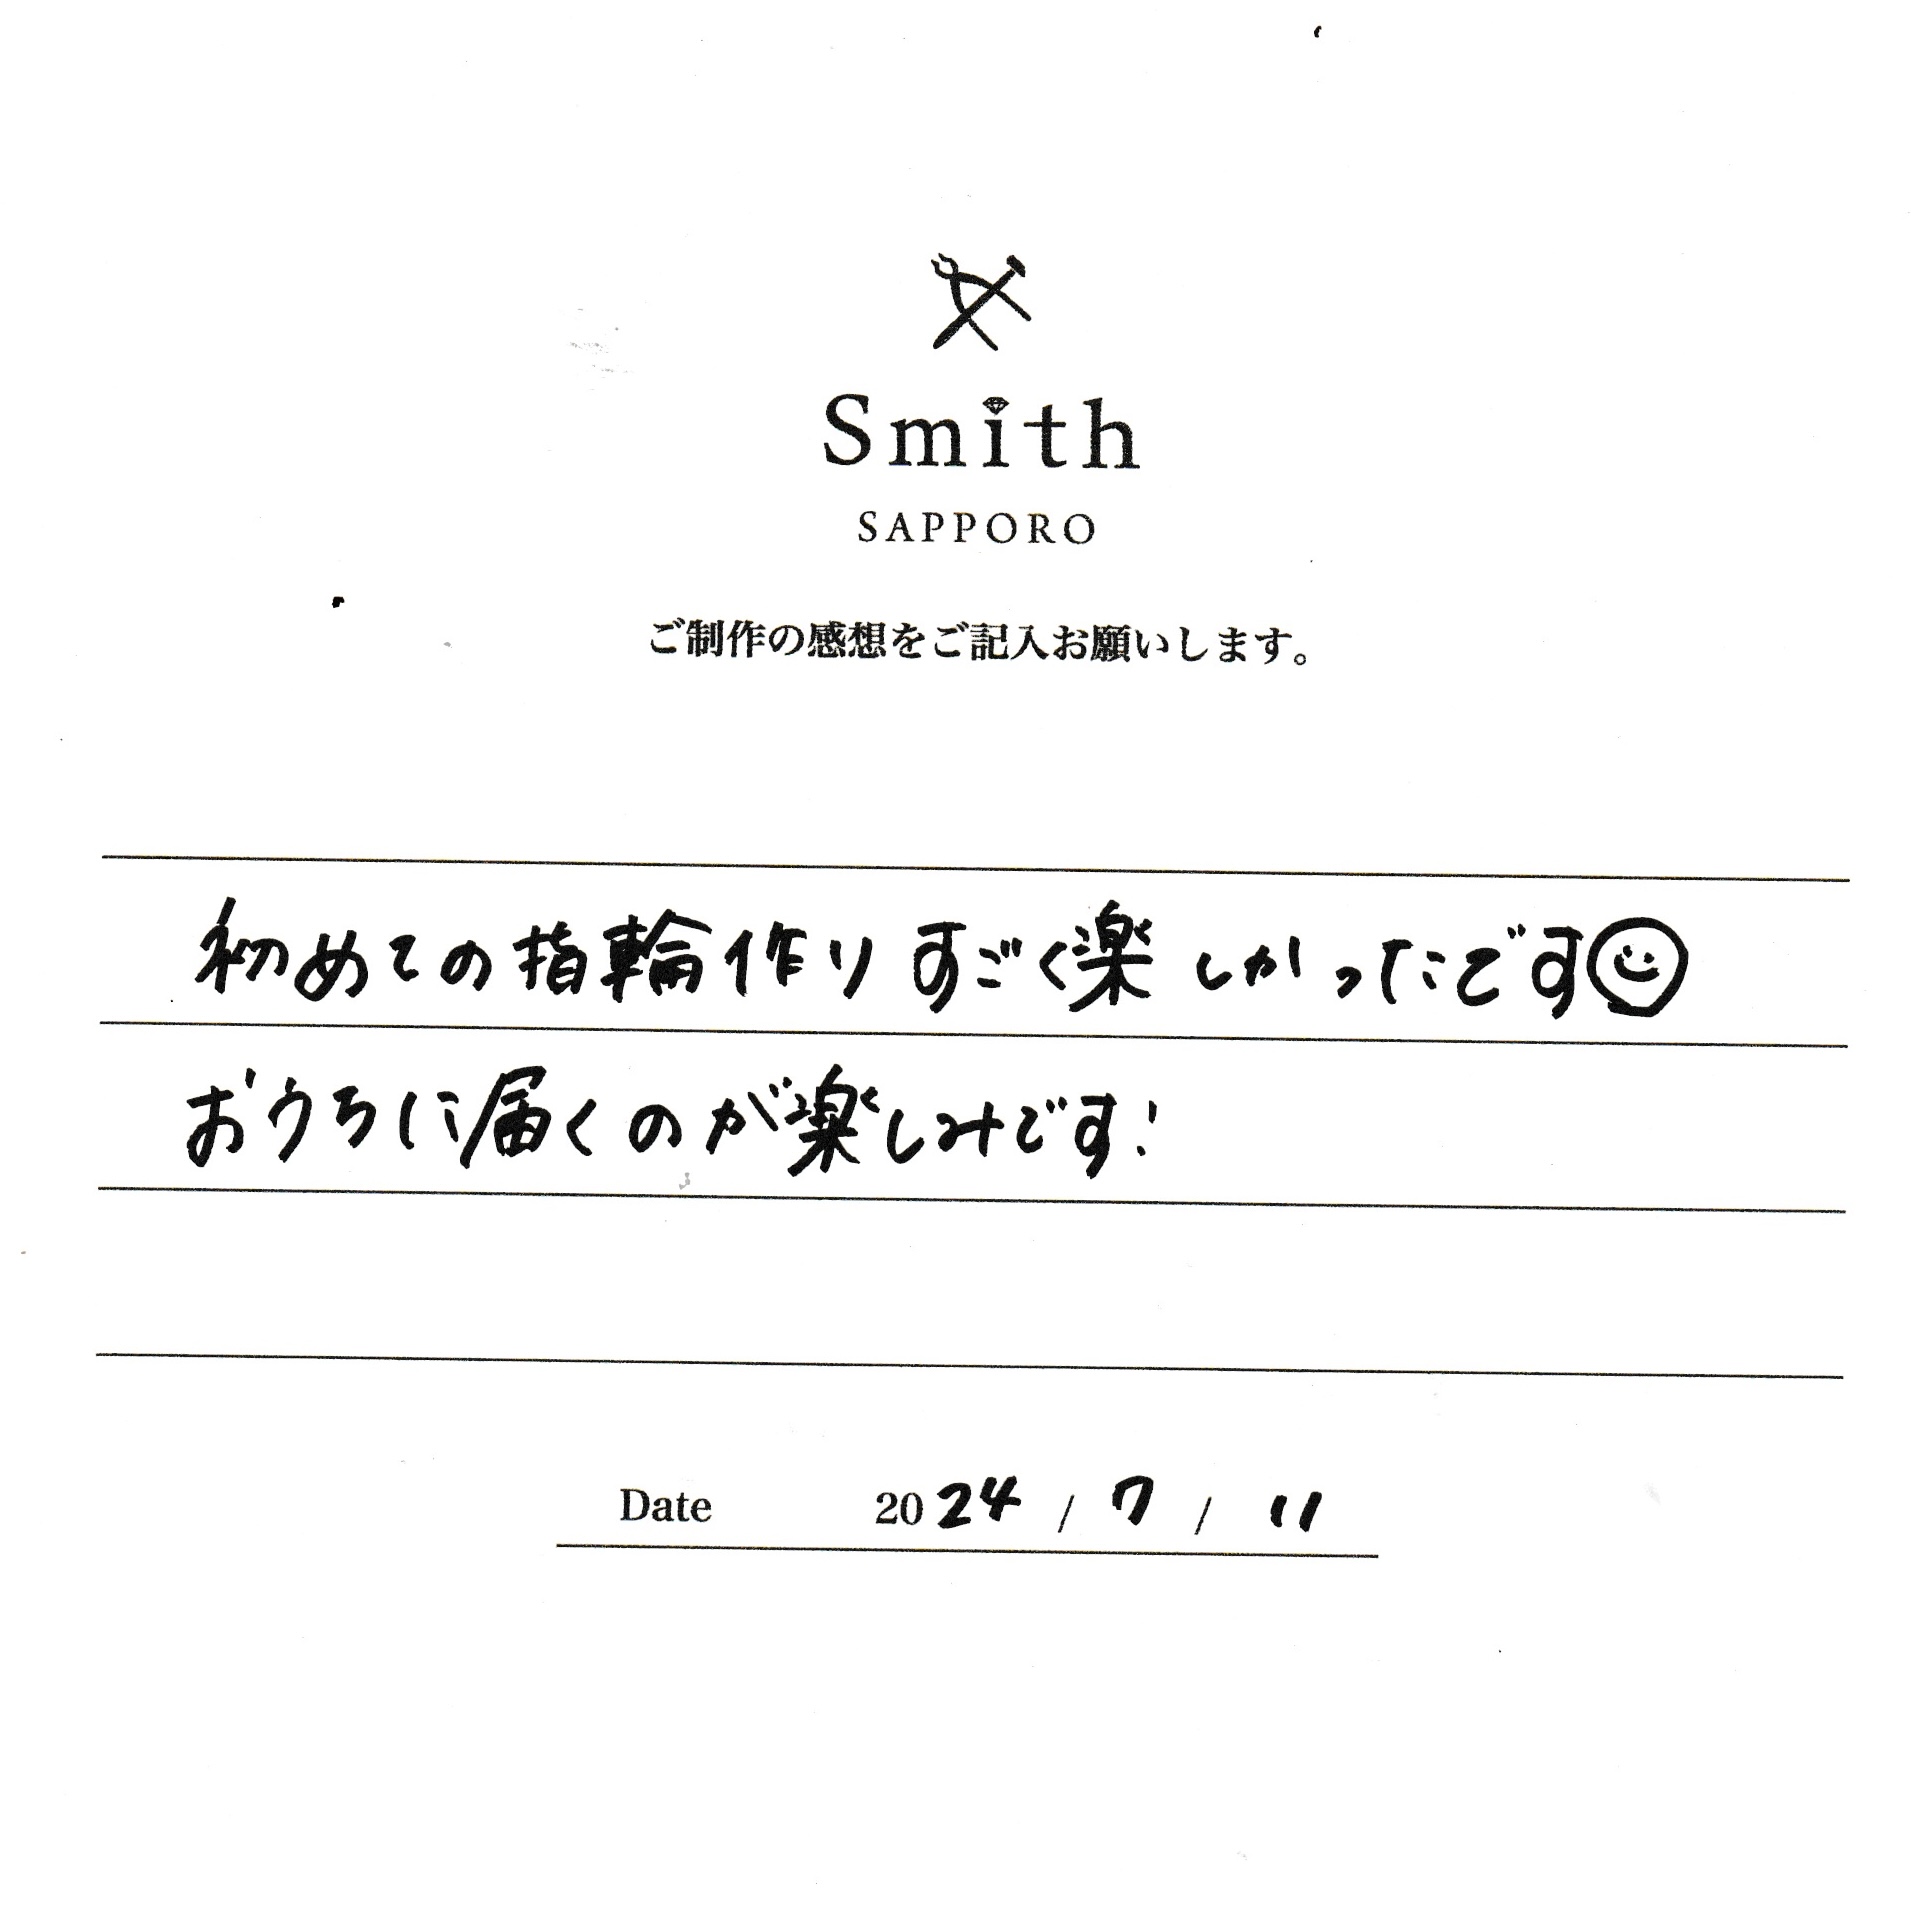 Smith
SAPPORO
ご制作の感想をご記入お願いします。
初めての指輪作りすごく楽しかったです☺
おうちに届くのが楽しみです!
Date 2024 / 7 / 11